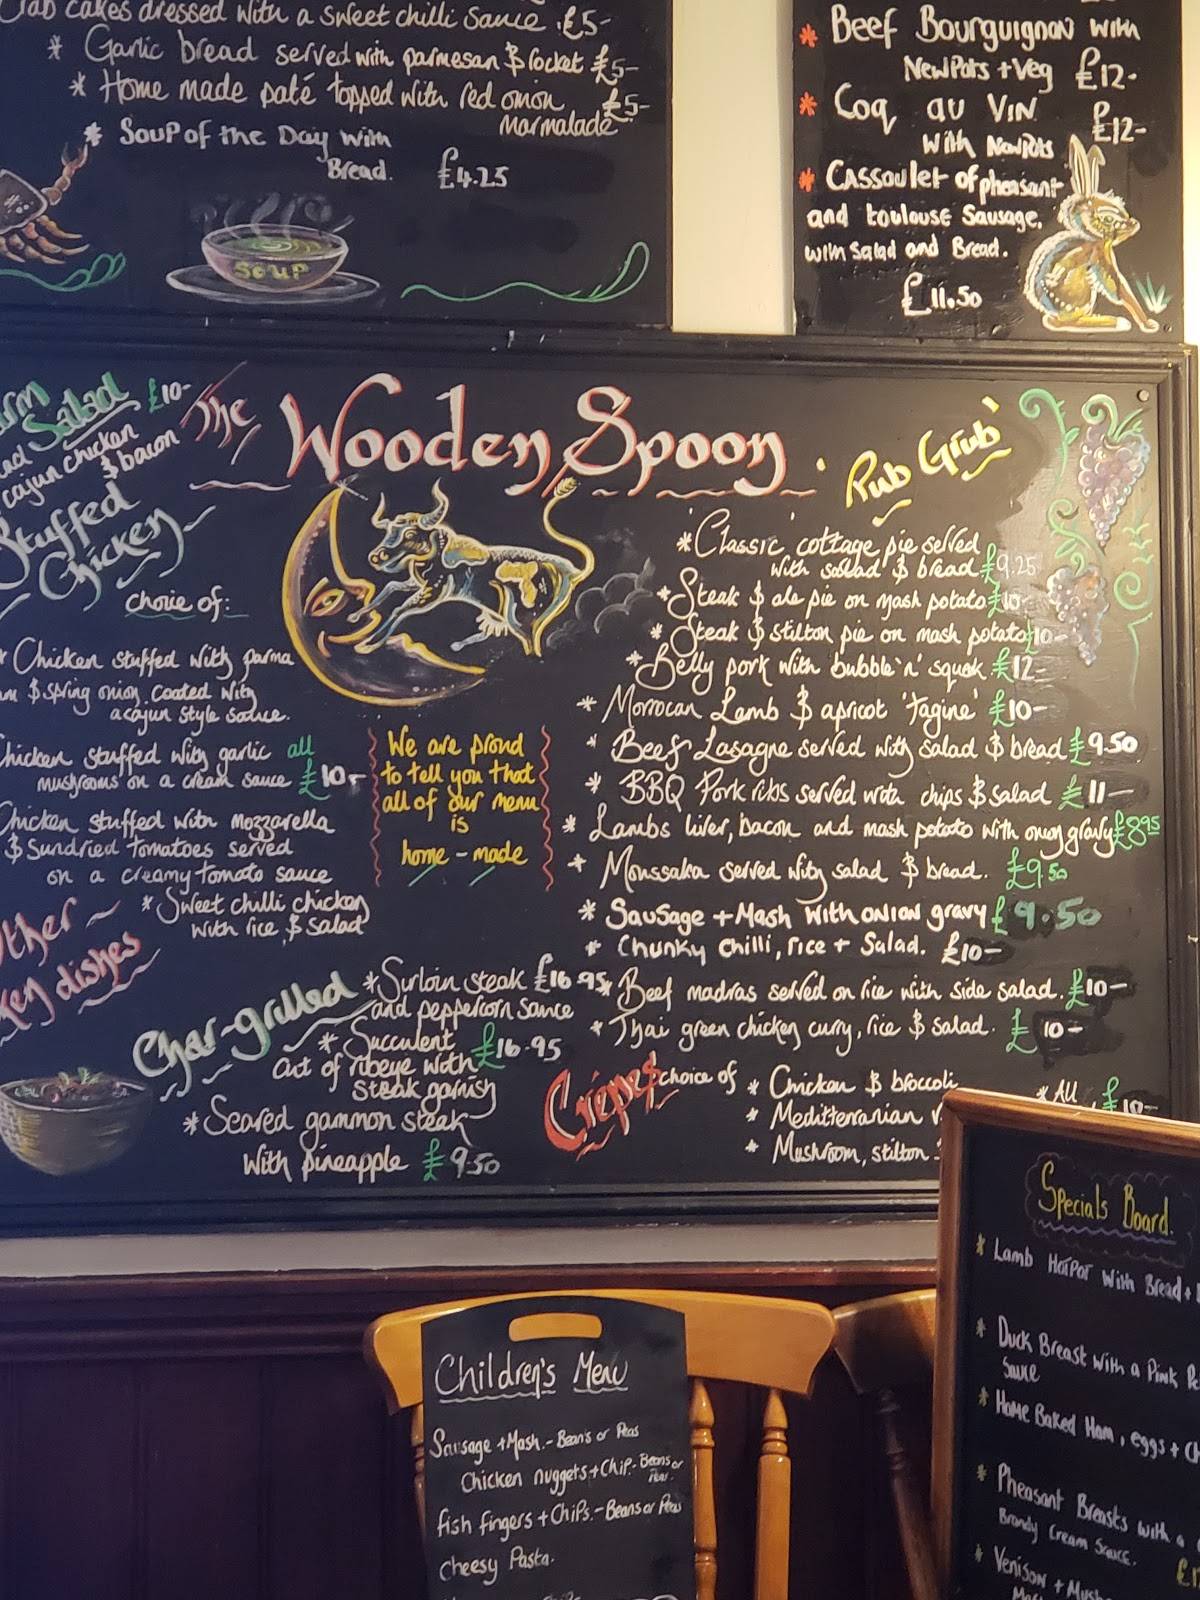 Crab cakes dressed with a sweet chilli sauce £5-
* Garlic bread served with parmesan & rocket £5-
* Home made paté topped with red onion £5-
Marmalade
* Soup of the Day with
Bread. £4.25
SOUP
* Beef Bourguignon with
New Pots + Veg £12-
* Coq au Vin £12-
with New Pots
* Cassoulet of pheasant
and toulouse Sausage.
with Salad and Bread.
£11.50
The Wooden Spoon
'Pub Grub'
Salad £10-
cajun chicken
& bacon
Stuffed
Chicken
choice of:
* Chicken stuffed with parma
& spring onion coated with
a cajun style sauce.
Chicken stuffed with garlic all
mushrooms on a cream sauce £10-
Chicken stuffed with mozzarella
& Sundried tomatoes served
on a creamy tomato sauce
Other
dishes
* Sweet chilli chicken
with rice & salad
We are proud
to tell you that
all of our menu
is
home-made
Char-grilled
* Surloin steak £16.95
and peppercorn sauce
* Succulent
cut of ribeye with £16.95
steak garnish
* Seared gammon steak
with pineapple £9.50
* 'Classic' cottage pie served
with salad & bread £9.25
* Steak & ale pie on mash potato £10-
* Steak & stilton pie on mash potato £10-
* Belly pork with bubble 'n' squeak £12-
* Morrocan Lamb & apricot 'tagine' £10-
* Beef Lasagne served with salad & bread £9.50
* BBQ Pork ribs served with chips & salad £11-
* Lambs liver, bacon and mash potato with onion gravy £8.95
* Moussaka served with salad & bread. £9.50
* Sausage + Mash with onion gravy £9.50
* Chunky Chilli, rice + Salad. £10-
* Beef madras served on rice with side salad. £10-
* Thai green chicken curry, rice & salad. £10-
Crêpes choice of * Chicken & broccoli
* Mediterranian
* Mushroom, stilton
* All £10-
Specials Board.
* Lamb Hotpot with Bread +
* Duck Breast with a Pink
Sauce
* Home Baked Ham, eggs +
* Pheasant Breasts with a
Brandy Cream Sauce.
* Venison +
Children's Menu
Sausage + Mash. - Beans or Peas
Chicken nuggets + Chip. - Beans or
Peas.
fish fingers + Chips. - Beans or Peas
Cheesy Pasta.